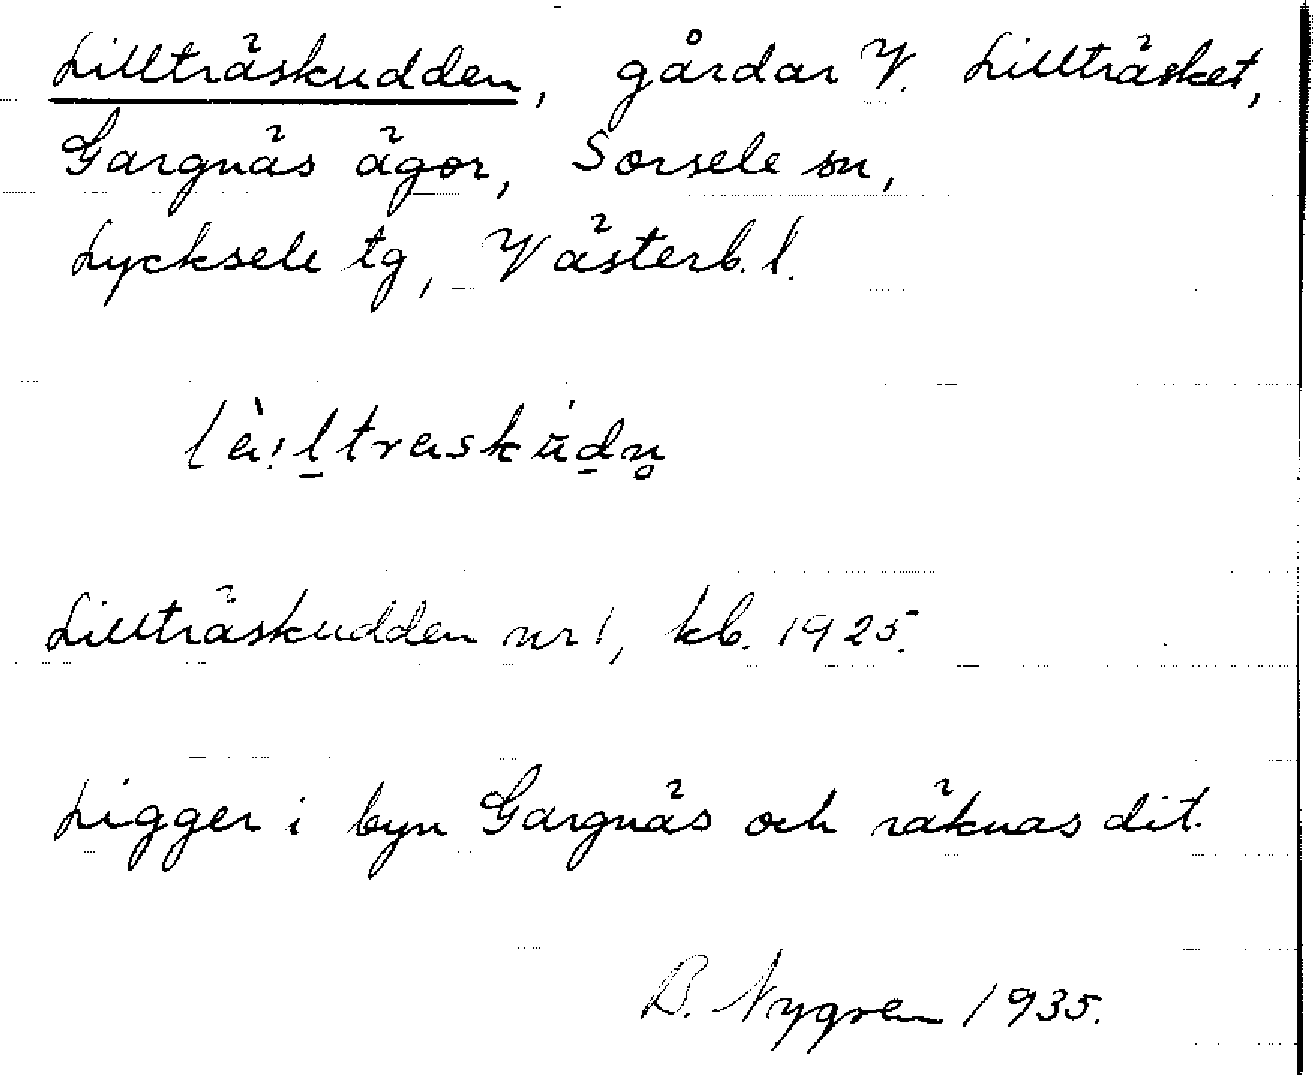 Lillträskudden, gårdar V. Lillträsket,
Gargnäs ägor, Sorsele sn,
Lycksele tg, Västerb. l.
Lillträskudden nr 1, kb. 1925.
Ligger i byn Gargnäs och räknas dit.
B. Nygren 1935.